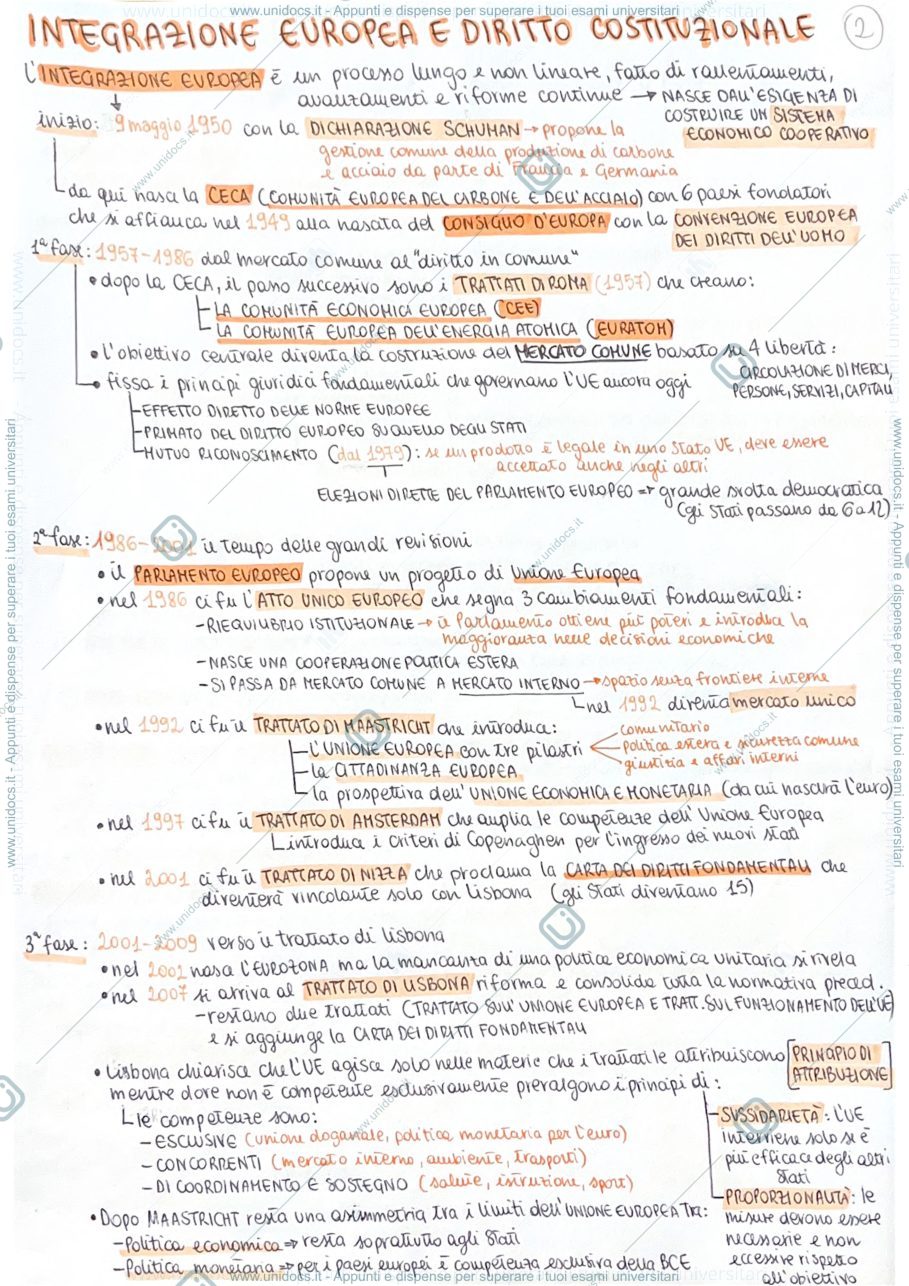 www.unidocs.it - Appunti e dispense per superare i tuoi esami universitari
INTEGRAZIONE EUROPEA E DIRITTO COSTITUZIONALE 2
L'INTEGRAZIONE EUROPEA è un processo lungo e non lineare, fatto di rallentamenti,
avanzamenti e riforme continue → NASCE DALL'ESIGENZA DI
COSTRUIRE UN SISTEMA
ECONOMICO COOPERATIVO
inizio: 9 maggio 1950 con la DICHIARAZIONE SCHUMAN → propone la
gestione comune della produzione di carbone
e acciaio da parte di Francia e Germania
da qui nasce la CECA (COMUNITÀ EUROPEA DEL CARBONE E DELL'ACCIAIO) con 6 paesi fondatori
che si affianca nel 1949 alla nascita del CONSIGLIO D'EUROPA con la CONVENZIONE EUROPEA
DEI DIRITTI DELL'UOMO
1ª fase: 1957-1986 dal mercato comune al "diritto in comune"
• dopo la CECA, il passo successivo sono i TRATTATI DI ROMA (1957) che creano:
LA COMUNITÀ ECONOMICA EUROPEA (CEE)
LA COMUNITÀ EUROPEA DELL'ENERGIA ATOMICA (EURATOM)
• l'obiettivo centrale diventa la costruzione del MERCATO COMUNE basato su 4 libertà:
CIRCOLAZIONE DI MERCI,
PERSONE, SERVIZI, CAPITALI
• fissa i principi giuridici fondamentali che governano l'UE ancora oggi
-EFFETTO DIRETTO DELLE NORME EUROPEE
-PRIMATO DEL DIRITTO EUROPEO SU QUELLO DEGLI STATI
-MUTUO RICONOSCIMENTO (dal 1979): se un prodotto è legale in uno Stato UE, deve essere
accettato anche negli altri
ELEZIONI DIRETTE DEL PARLAMENTO EUROPEO ⇒ grande svolta democratica
(gli Stati passano da 6 a 12)
2ª fase: 1986-2001 il tempo delle grandi revisioni
• il PARLAMENTO EUROPEO propone un progetto di Unione Europea
• nel 1986 ci fu l'ATTO UNICO EUROPEO che segna 3 cambiamenti fondamentali:
-RIEQUILIBRIO ISTITUZIONALE → il Parlamento ottiene più poteri e introduce la
maggioranza nelle decisioni economiche
-NASCE UNA COOPERAZIONE POLITICA ESTERA
-SI PASSA DA MERCATO COMUNE A MERCATO INTERNO → spazio senza frontiere interne
nel 1992 diventa mercato unico
• nel 1992 ci fu il TRATTATO DI MAASTRICHT che introduce:
L'UNIONE EUROPEA con tre pilastri
comunitario
politica estera e sicurezza comune
giustizia e affari interni
la CITTADINANZA EUROPEA
la prospettiva dell'UNIONE ECONOMICA E MONETARIA (da cui nascerà l'euro)
• nel 1997 ci fu il TRATTATO DI AMSTERDAM che amplia le competenze dell'Unione Europea
introduce i criteri di Copenaghen per l'ingresso dei nuovi stati
• nel 2001 ci fu il TRATTATO DI NIZZA che proclama la CARTA DEI DIRITTI FONDAMENTALI che
diventerà vincolante solo con Lisbona (gli Stati diventano 15)
3ª fase: 2001-2009 verso il trattato di Lisbona
• nel 2002 nasce l'EUROZONA ma la mancanza di una politica economica unitaria si rivela
• nel 2007 si arriva al TRATTATO DI LISBONA riforma e consolida tutta la normativa preced.
-restano due trattati (TRATTATO SULL'UNIONE EUROPEA E TRATT. SUL FUNZIONAMENTO DELL'UE)
e si aggiunge la CARTA DEI DIRITTI FONDAMENTALI
• Lisbona chiarisce che l'UE agisce solo nelle materie che i Trattati le attribuiscono [PRINCIPIO DI
ATTRIBUZIONE]
mentre dove non è competente esclusivamente prevalgono i principi di:
le competenze sono:
-ESCLUSIVE (unione doganale, politica monetaria per l'euro)
-CONCORRENTI (mercato interno, ambiente, trasporti)
-DI COORDINAMENTO E SOSTEGNO (salute, istruzione, sport)
-SUSSIDARIETÀ: l'UE
interviene solo se è
più efficace degli altri
Stati
-PROPORZIONALITÀ: le
misure devono essere
necessarie e non
eccessive rispetto
all'obiettivo
• Dopo MAASTRICHT resta una asimmetria tra i limiti dell'UNIONE EUROPEA tra:
-Politica economica ⇒ resta soprattutto agli Stati
-Politica monetaria ⇒ per i paesi europei è competenza esclusiva della BCE
www.unidocs.it - Appunti e dispense per superare i tuoi esami universitari